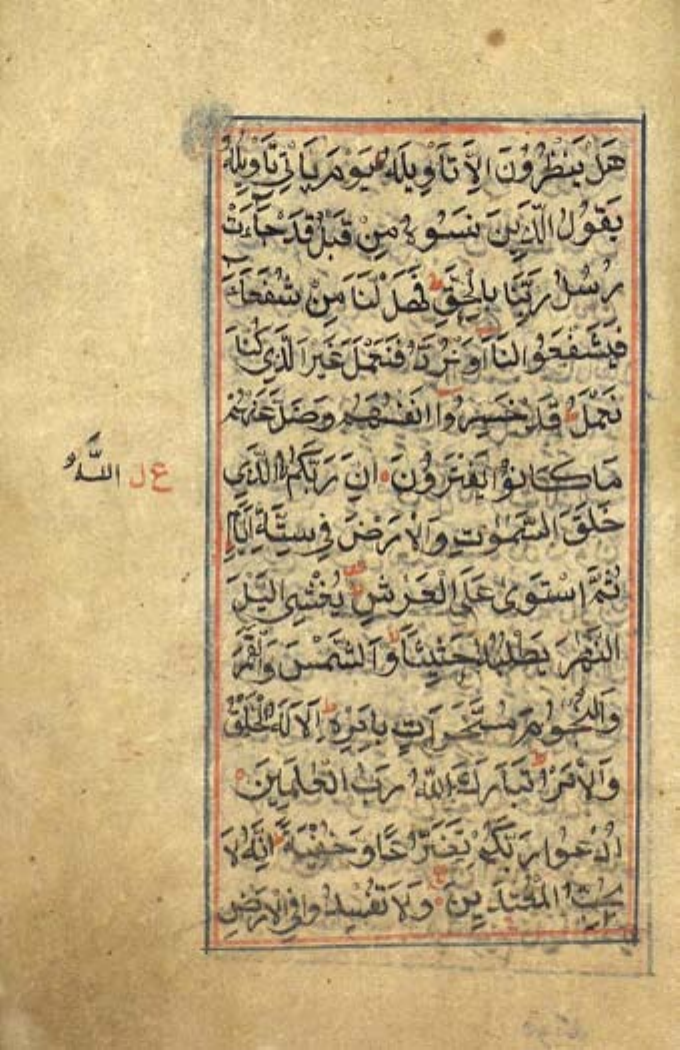 هَلْ يَنْظُرُونَ اِلَّا تَاْوِيلَهُ يَوْمَ يَاْتِى تَاْوِيلُهُ
يَقُولُ الَّذِينَ نَسَوُهُ مِنْ قَبْلُ قَدْ جَآءَتْ
رُسُلُ رَبِّنَا بِالْحَقِّ ط فَهَلْ لَنَا مِنْ شُفَعَآءَ
فَيَشْفَعُوا لَنَا اَوْ نُرَدُّ فَنَعْمَلَ غَيْرَ الَّذِى كُنَّا
نَعْمَلُ ط قَدْ خَسِرُوا اَنْفُسَهُمْ وَضَلَّ عَنْهُمْ
مَا كَانُوْا يَفْتَرُونَ اِنَّ رَبَّكُمُ اللّٰهُ الَّذِى
خَلَقَ السَّمٰوٰتِ وَالْاَرْضَ فِى سِتَّةِ اَيَّامٍ
ثُمَّ اسْتَوٰى عَلَى الْعَرْشِ يُغْشِى الَّيْلَ
النَّهَارَ يَطْلُبُهُ حَثِيثًا وَالشَّمْسَ وَالْقَمَرَ
وَالنُّجُومَ مُسَخَّرَاتٍ بِاَمْرِهِ ط اَلَا لَهُ الْخَلْقُ
وَالْاَمْرُ ط تَبَارَكَ اللّٰهُ رَبُّ الْعٰلَمِينَ
اُدْعُوا رَبَّكُمْ تَضَرُّعًا وَخُفْيَةً ط اِنَّهُ لَا
يُحِبُّ الْمُعْتَدِينَ وَلَا تُفْسِدُوا فِى الْاَرْضِ
ع ل اللّٰهُ